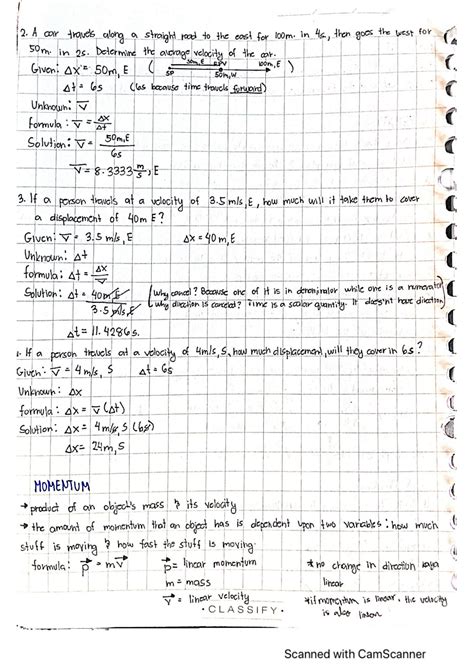 2. A car travels along a straight road to the east for 100m. in 4s, then goes the west for
50m. in 2s. Determine the average velocity of the car.
Given: Δx = 50m, E ( 50m, E 100m, E
SP 50m, W
Δt = 6s (6s because time travels forward)
Unknown: v
formula: v = Δx/Δt
Solution: v = 50m, E
6s
v = 8.3333 m/s, E
3. If a person travels at a velocity of 3.5 m/s, E, how much will it take them to cover
a displacement of 40m E?
Given: v = 3.5 m/s, E Δx = 40m, E
Unknown: Δt
formula: Δt = Δx/v
Solution: Δt = 40m, E (why cancel? Because one of it is in denominator while one is a numerator
3.5 m/s, E why direction is canceled? Time is a scalar quantity. It doesn't have direction)
Δt = 11.4286s.
If a person travels at a velocity of 4m/s, S, how much displacement, will they cover in 6s?
Given: v = 4 m/s, S Δt = 6s
Unknown: Δx
formula: Δx = v (Δt)
Solution: Δx = 4 m/s, S (6s)
Δx = 24m, S
MOMENTUM
→ product of an object's mass & its velocity
→ the amount of momentum that an object has is dependent upon two variables: how much
stuff is moving & how fast the stuff is moving.
formula: p = mv p = linear momentum * no change in direction kaya
m = mass linear
v = linear velocity * if momentum is linear, the velocity
• CLASSIFY • is also linear
Scanned with CamScanner